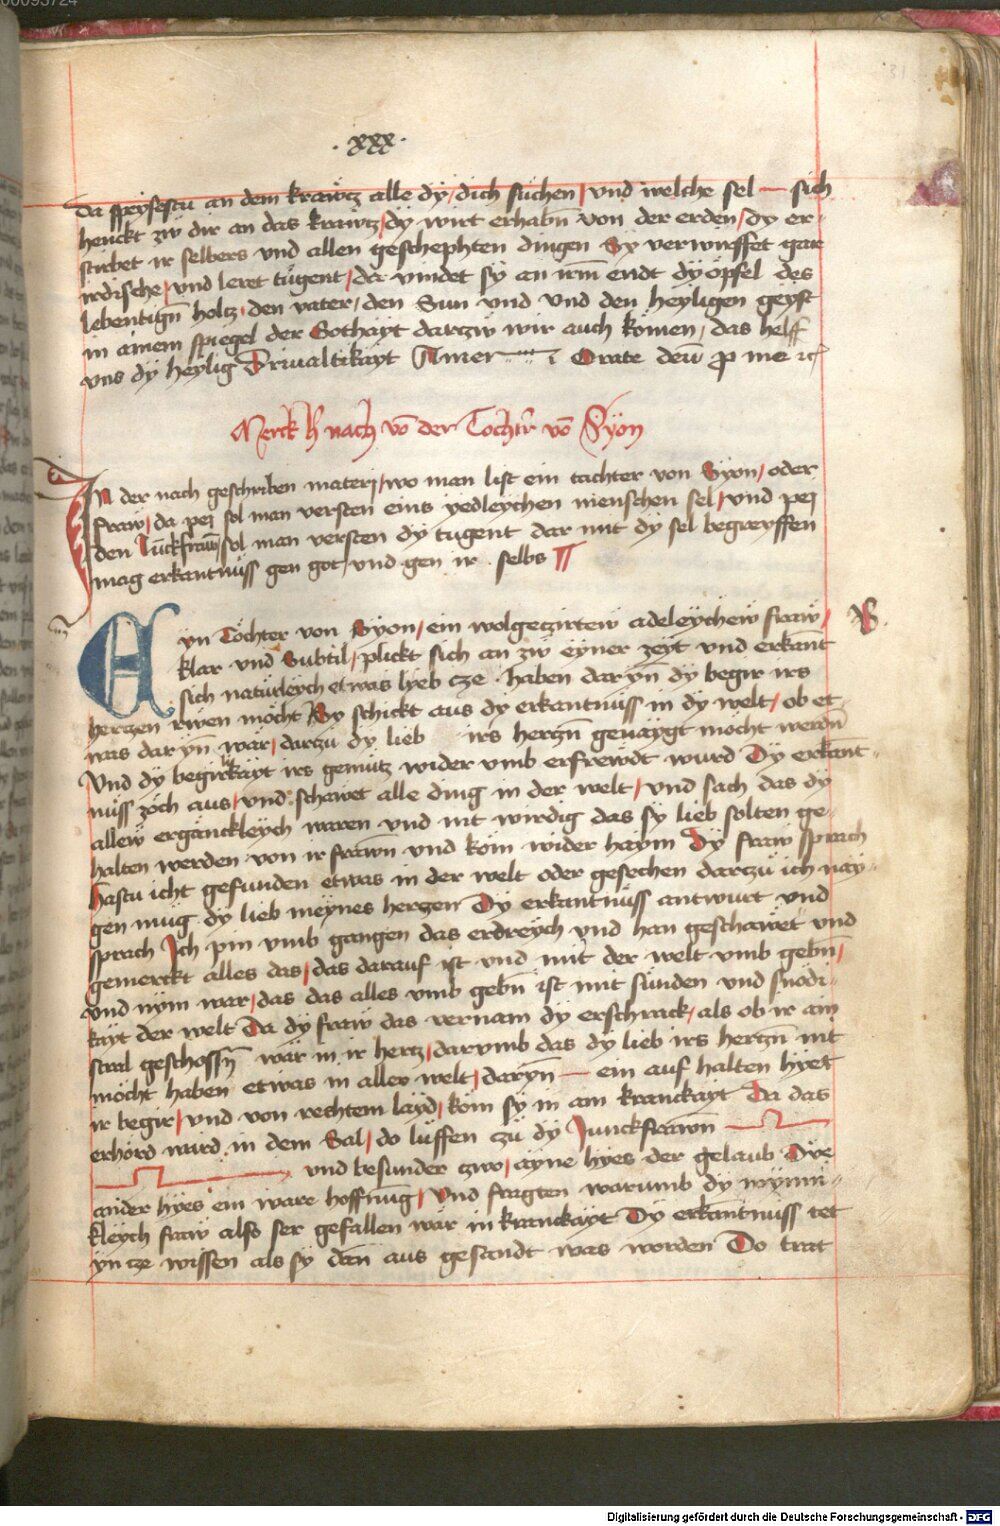 00093724
31
· xxx ·
da speysestu an dem krawtz alle dy / dich suchen / vnd welche sel — sich
henckt zw dir an das krawtz / dy wirt erhabn von der erden / dy er-
stirbet ir selbers vnd allen geschephten dingen Sy verwirffet gar
irdische / vnd leret tugent / da vindet sy an irm endt dy öpfel des
lebentign holtz / den vater / den Sun vnd vnd den heyligen geyst
in ainem spiegel der Gothayt darzw wir auch kömen / das helff
vns dy heylig Drivaltikayt Amen Orate deū ꝓ me ⁊c
Merck h nach vō der Tochtr vō Syon
In der nach geschriben materj / wo man list ein tachter von Syon / oder
fraw / da pej sol man versten eins yedleychen menschen sel / vnd pej
den Junckfrawn sol man versten dy tugent dar mit dy sel begreyffen
mag erkantnüss gen got / vnd gen ir selbs
Eyn Tochter von Syon / ein wolgeczirtew adeleychew fraw /
klar vnd Subtil / plickt sich an zw eyner zeyt vnd erkant
sich naturleych etwas lyeb cze haben dar yn̄ dy begir irs
hertzen rwen möcht Sy schickt aus dy erkantnüss in dy welt / ob et-
was dar yn̄ wär / darzu dy lieb irs hertzn̄ genaygt möcht werdn̄
Vnd dy begirlikayt irs gemutz wider vmb erfrewdt wurd Dy erkant-
nüss zöch aus / vnd schawet alle ding in der welt / vnd sach das dy
allew ergänckleych waren vnd nit wirdig das sy lieb solten ge-
halten werden von ir frawn vnd köm wider haym Dy fraw sprach
hastu icht gefunden etwas in der welt oder gesechen darczu ich nay-
gen müg dy lieb meynes herczen Dy erkantnüss antwurt vnd
sprach Ich pin vmb gangen das erdreych vnd han geschawet vnd
gemerckt alles das / das darauf ist vnd mit der welt vmb gebn̄ /
vnd nym war / das das alles vmb gebn̄ ist mit sunden vnd snödi-
kayt der welt Da dy fraw das vernam dy erschrack / als ob ir ain
stral geschossn̄ wär in ir hertz / darvmb das dy lieb irs hertzn̄ nit
möcht haben etwas in aller welt / daryn̄ — ein auf halten hyet
ir begir / vnd von rechtem layd / köm sy in am kranckayt Da das
erhörd ward in dem Sal / do luffen zu dy Junckfrawn
vnd besunder zwo / ayne hyes der gelaub Dye
ander hyes ein ware hoffnung / Vnd fragten warumb dy mynni-
kleych fraw also ser gefallen wär in kranckayt Dy erkantnüss tet
yn cze wissen als sy dan aus gesandt was worden Do trat
Digitalisierung gefördert durch die Deutsche Forschungsgemeinschaft - DFG